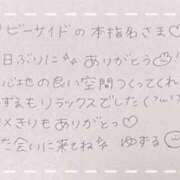 ビーサイドの本指名さま♡
日ぶりに ありがとう
心地の良い空間つくってくれ
ずぇもリラックスでした
×きりもありがとっ♡
た会いに来てね ゆずる